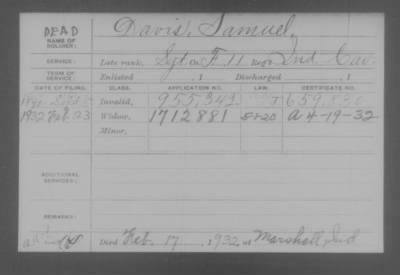 DEAD
NAME OF SOLDIER:
Davis, Samuel,
SERVICE:
Late rank, Sgt Co F, 11 Reg't Ind. Cav.
TERM OF SERVICE:
Enlisted , 1 Discharged , 1
DATE OF FILING. CLASS. APPLICATION NO. LAW. CERTIFICATE NO.
Invalid, 955,342
1932 Feb 23 Widow, 1712881 5-1-20 A 4-19-32
Minor,
ADDITIONAL SERVICES:
REMARKS:
Died Feb. 17, 1932, at Marshall, Ind